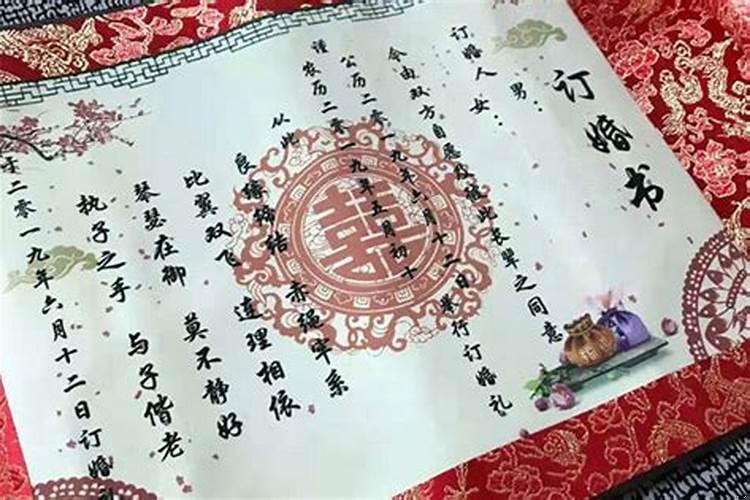 订婚书
男：
订婚人女：
今由双方自愿及彼此长辈之同意
谨公历二零一九年六月十二日举行订婚礼
农历二零一九年五月初十
从此
良缘缔结 赤绳牢系
比翼双飞 连理相依
琴瑟在御 莫不静好
执子之手 与子偕老
于二零一九年六月十二日订婚